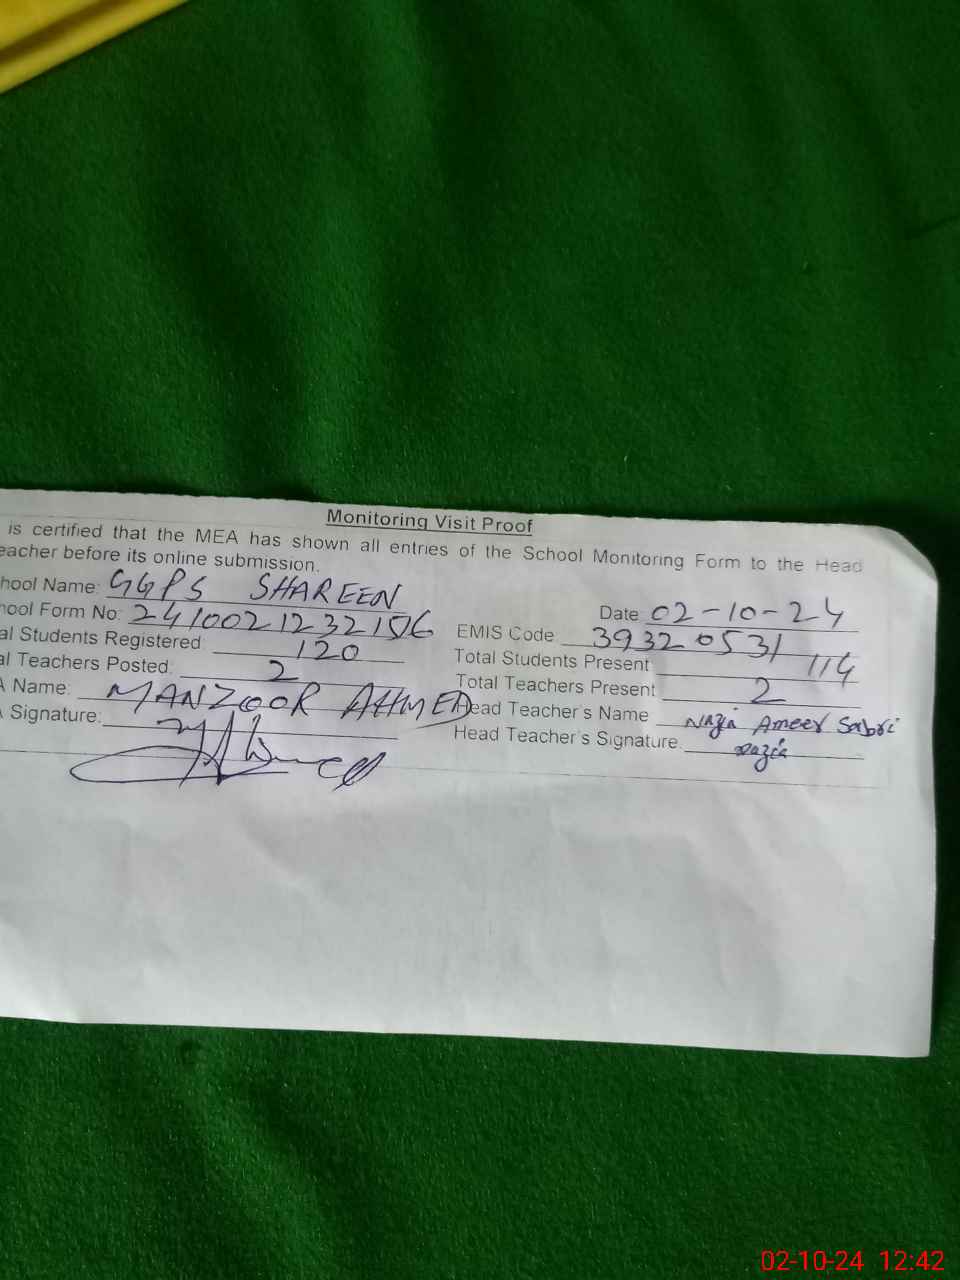 Monitoring Visit Proof
is certified that the MEA has shown all entries of the School Monitoring Form to the Head
eacher before its online submission.
hool Name: GGPS SHAREEN
Date 02-10-24
hool Form No: 241002123215
EMIS Code 39320531
al Students Registered: 120
Total Students Present: 114
al Teachers Posted: 2
Total Teachers Present 2
A Name: MANZOOR AHMED
Head Teacher's Name Nazia Ameer Sabri
A Signature:
Head Teacher's Signature. Nazia
02-10-24 12:42